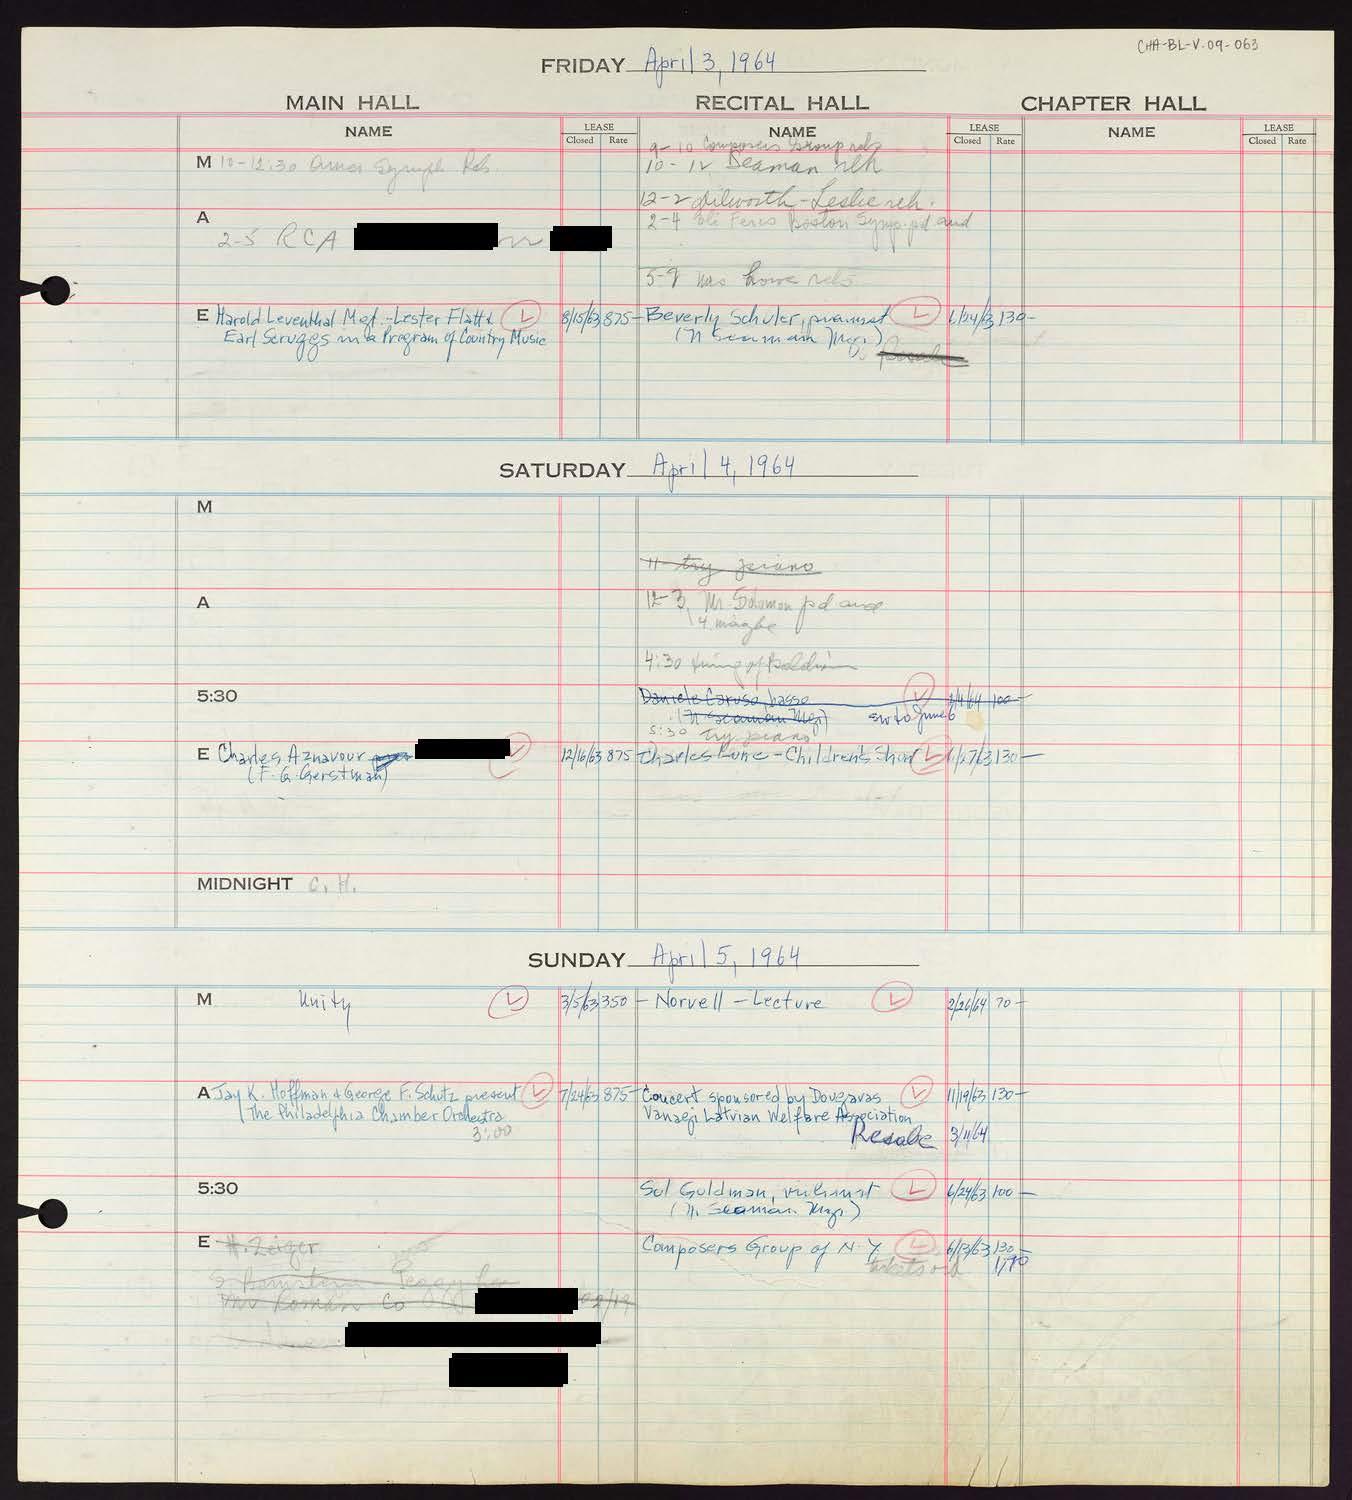 CHA-BL-V.09-063
FRIDAY April 3, 1964
MAIN HALL RECITAL HALL CHAPTER HALL
NAME LEASE NAME LEASE NAME LEASE
Closed Rate Closed Rate Closed Rate
9-10 Composers Group reh
M 10-12:30 Symph Reh. 10-12 Seaman reh
12-2 dilworth-Leslie reh.
A 2-4 Boston Symp. pd and
2-5 RCA
5-9 reh
E Harold Leventhal Mgt.-Lester Flatt & 8/15/63 875- Beverly Schuler, pianist 6/24/63 130-
Earl Scruggs in a Program of Country Music (N Seaman Mgr.)
Resale
SATURDAY April 4, 1964
M
11 try piano
A 12-3 Mr. Solomon pd and
4 maybe
4:30 tuning of Baldwin
5:30 Daniele Caruso, basso 2/4/64 100-
(N Seaman Mgr) sw to June 6
5:30 try piano
E Charles Aznavour 12/16/63 875 Charles Lune-Children's Show 130-
(F. G. Gerstman)
MIDNIGHT C. H.
SUNDAY April 5, 1964
M Unity 3/5/63 350- Norvell - Lecture 2/26/64 70-
A Jay K. Hoffman & George F. Schutz present 7/24/63 875- Concert sponsored by Dougavas 11/19/63 130-
The Philadelphia Chamber Orchestra Vanagi Latvian Welfare Association
3:00 Resale 3/11/64
5:30 Sol Goldman, violinist 6/24/63 100-
(N. Seaman Mgr.)
E H. Zeiger Composers Group of N.Y. 6/13/63 130-
tickets
Mr Roman Co